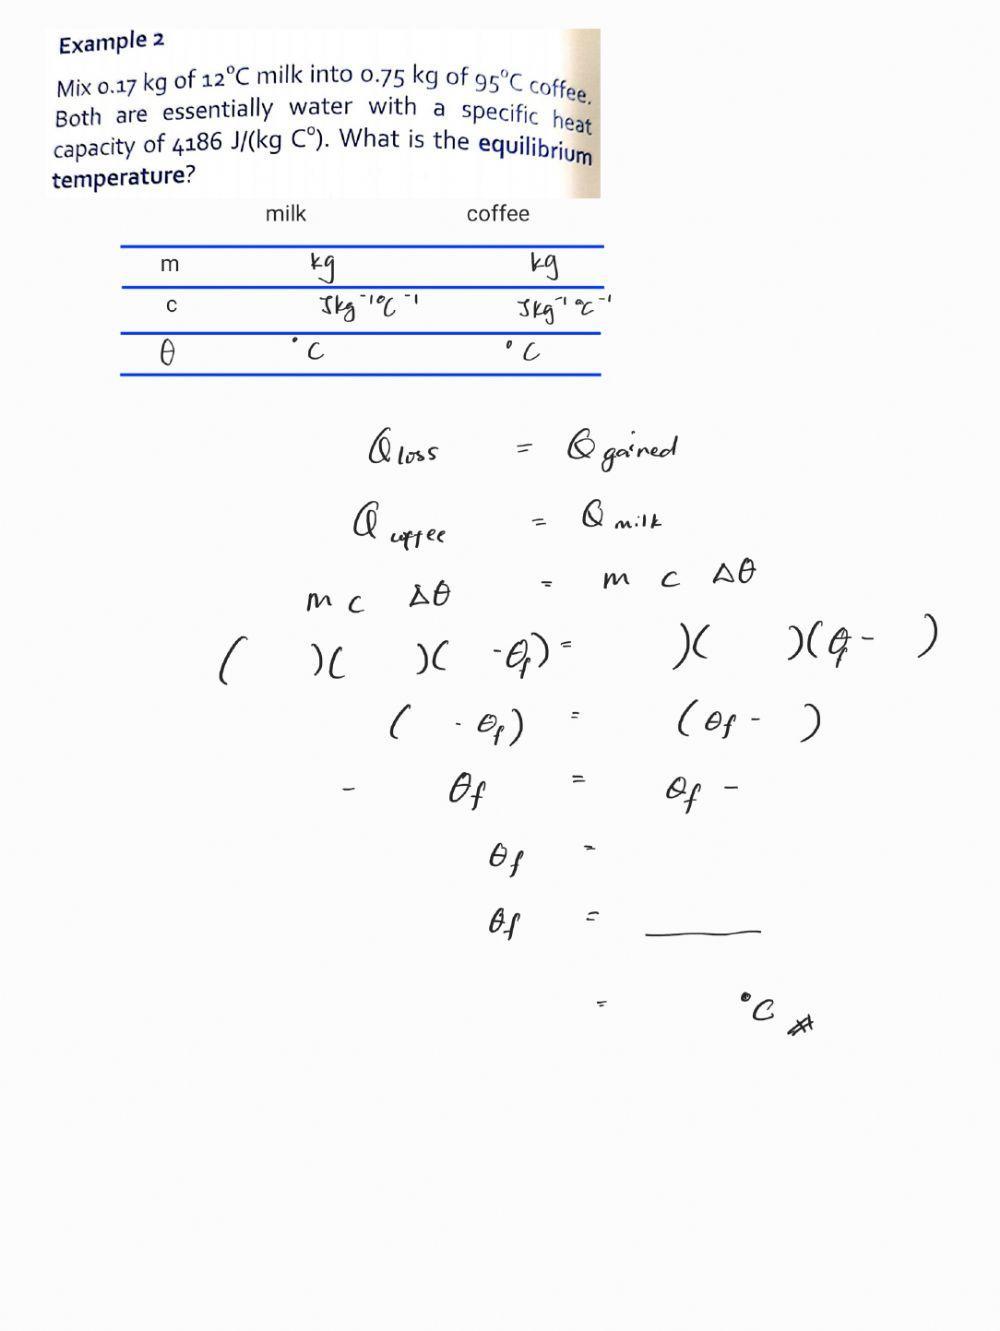 Example 2
Mix 0.17 kg of 12°C milk into 0.75 kg of 95°C coffee.
Both are essentially water with a specific heat
capacity of 4186 J/(kg C°). What is the equilibrium
temperature?
milk coffee
m kg kg
c Jkg⁻¹°C⁻¹ Jkg⁻¹°C⁻¹
θ °C °C
Q loss = Q gained
Q coffee = Q milk
m c Δθ = m c Δθ
( )( )( -θf) = )( )(θf - )
( - θf) = (θf - )
- θf = θf -
θf =
θf = ____
= °C #